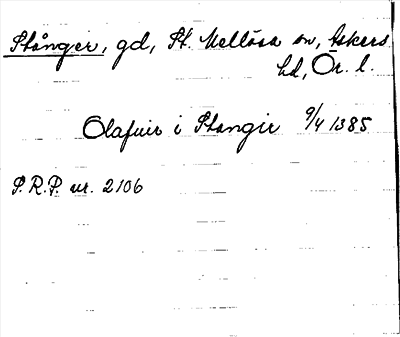 Stånger, gd, St. Mellösa sn, Askers
hd, Ör. l.
Olafuir i Stangir 9/4 1385
S.R.P. nr. 2106